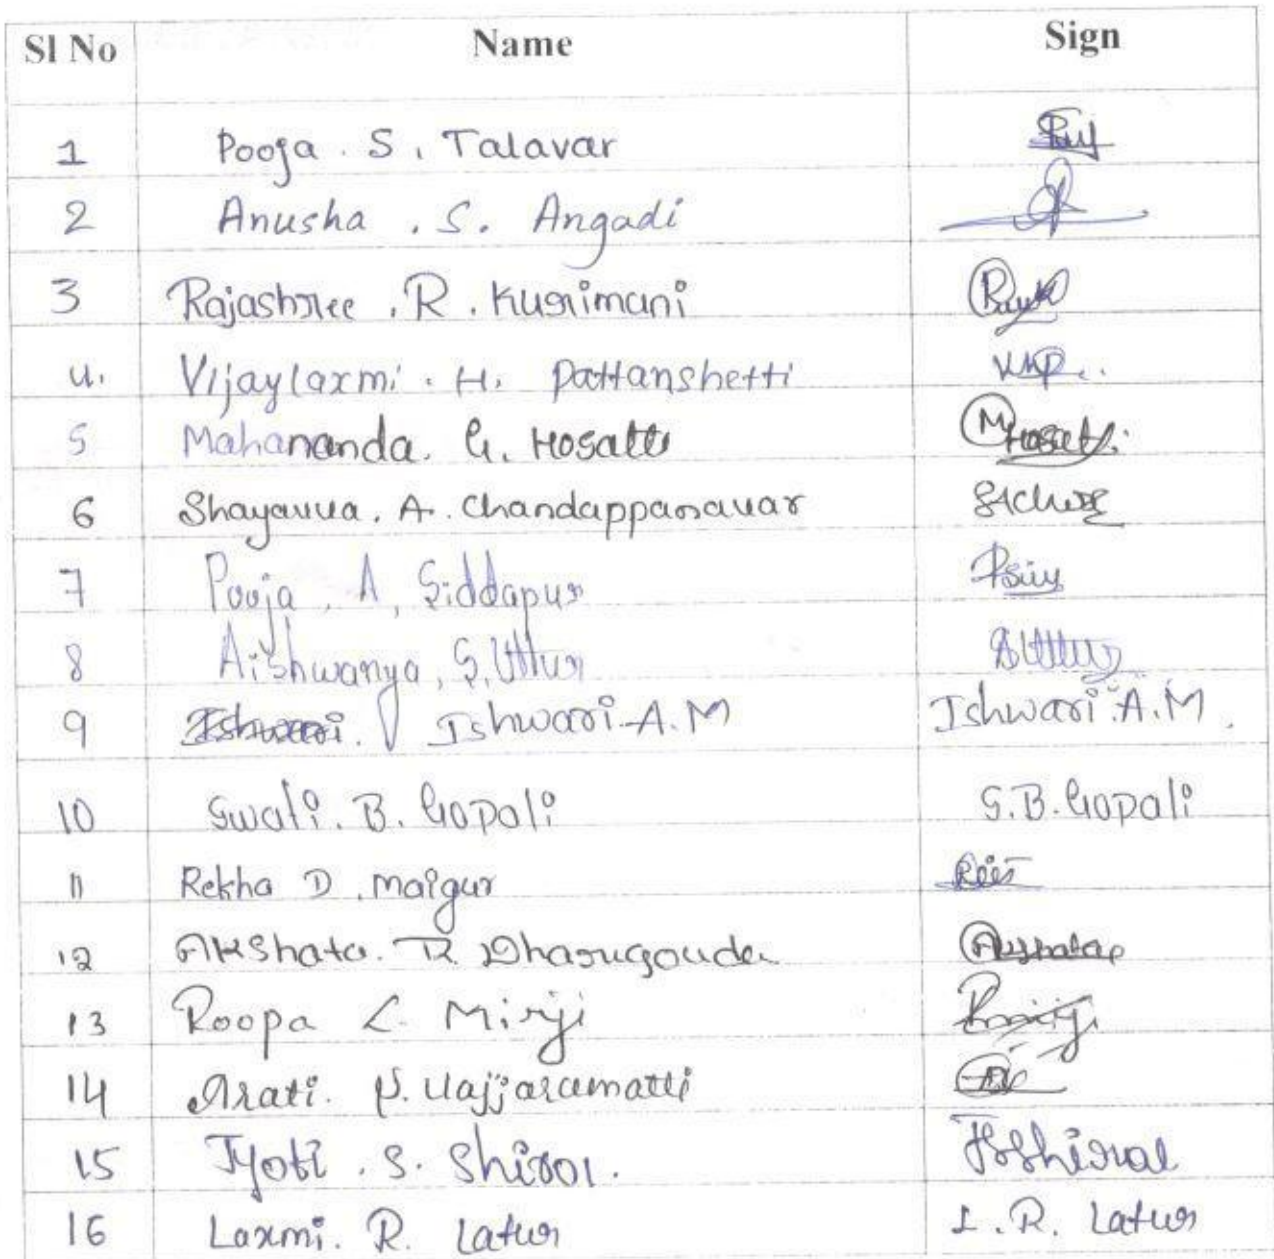 Sl No Name Sign
1 Pooja . S . Talavar
2 Anusha . S. Angadi
3 Rajashree . R . Kurimani
4. Vijaylaxmi . H. Pattanshetti VHP..
5 Mahananda. G. Hosatti M Hosatti.
6 Shayavva. A. Chandappanavar
7 Pooja , A, Siddapur
8 Aishwarya, S. Uttur SUttur
9 Ishwari. Ishwari.A.M Ishwari.A.M.
10 Swati. B. Gopali S.B. Gopali
11 Rekha D . Maigur
12 Akshata. R. Dharugouda Akshata
13 Roopa L. Mirji
14 Arati. P. Vajjaramatti
15 Jyoti . S. Shirol. JSShirol
16 Laxmi. R. Latur L.R. Latur